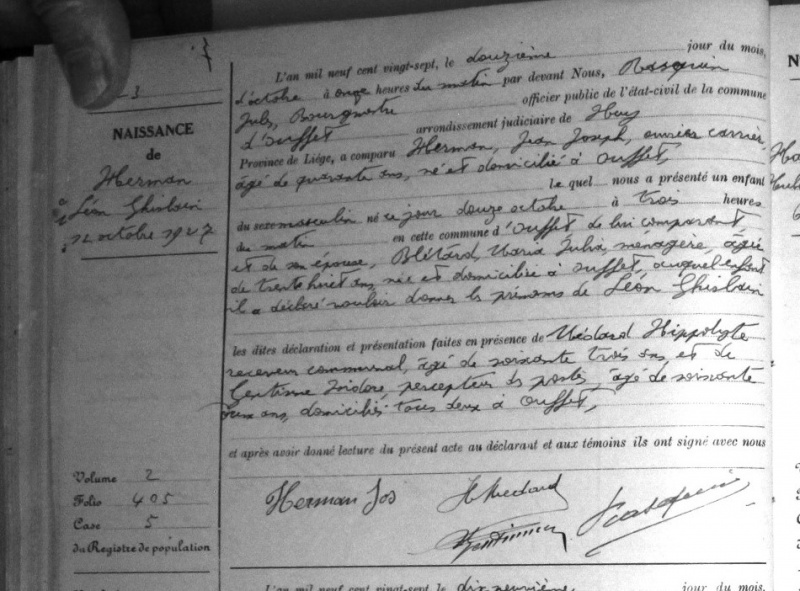 3
NAISSANCE
de
Herman
Léon Ghislain
12 octobre 1927
L'an mil neuf cent vingt-sept, le douzième jour du mois,
d'octobre à onze heures du matin par devant Nous, Rasquin
Jules, Bourgmestre officier public de l'état-civil de la commune
d'Ouffet arrondissement judiciaire de Huy
Province de Liége, a comparu Herman, Jean Joseph, ouvrier carrier,
âgé de quarante ans, né et domicilié à Ouffet,
le quel nous a présenté un enfant
du sexe masculin né ce jour douze octobre à trois heures
du matin en cette commune d'Ouffet de lui comparant
et de son épouse, Blétard, Maria Julia, ménagère, âgée
de trente huit ans, née et domiciliée à Ouffet, auquel enfant
il a déclaré vouloir donner les prénoms de Léon Ghislain
les dites déclaration et présentation faites en présence de Médard Hippolyte
receveur communal, âgé de soixante trois ans et de
Gentinne Isidore, percepteur des postes, âgé de soixante
deux ans, domiciliés tous deux à Ouffet,
et après avoir donné lecture du présent acte au déclarant et aux témoins ils ont signé avec nous
Herman Jos H Medard Rasquin
Gentinne
Volume 2
Folio 405
Case 5
du Registre de population
L'an mil neuf cent vingt-sept le dix neuvième jour du mois,